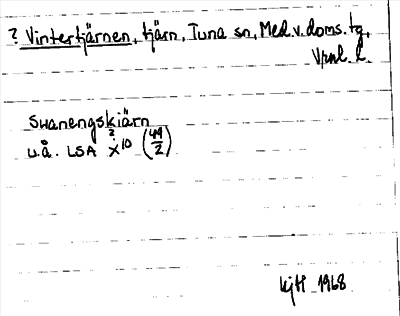 ? Vintertjärnen, tjärn, Tuna sn, Med.v.doms.tg,
Vrnl. l.
Swanengskiärn
u.å. LSA X²10 (49/2)
kjH 1968